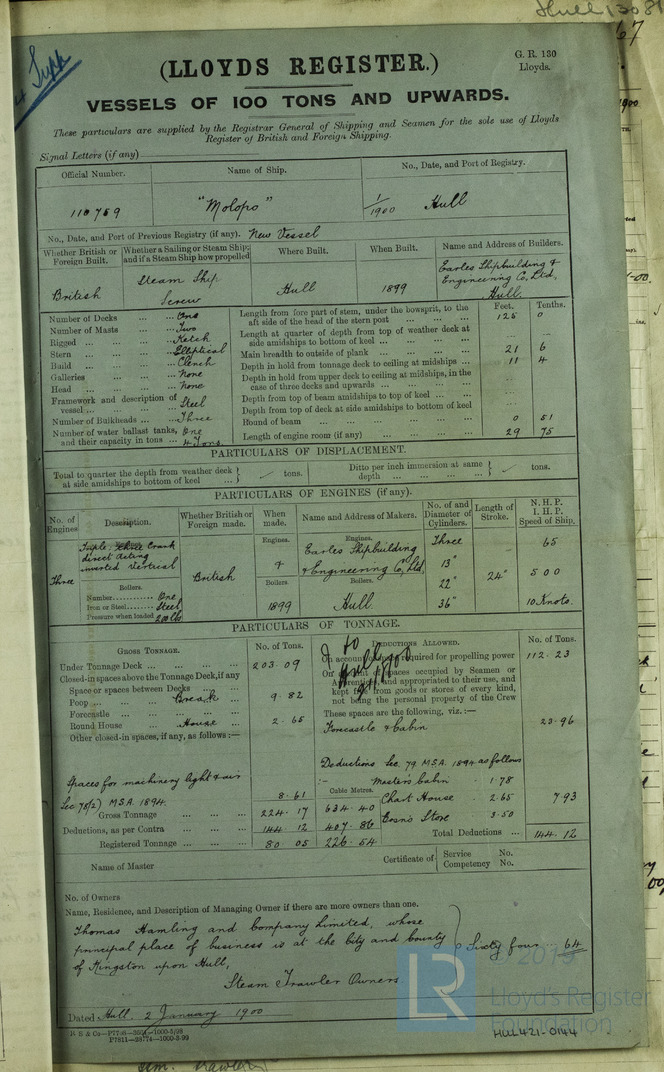 Hull 1308
67
(LLOYDS REGISTER.)
G. R. 130
Lloyds.
VESSELS OF 100 TONS AND UPWARDS.
These particulars are supplied by the Registrar General of Shipping and Seamen for the sole use of Lloyds
Register of British and Foreign Shipping.
Signal Letters (if any)
Official Number. Name of Ship. No., Date, and Port of Registry.
110759 "Molopo" 1/1900 Hull
No., Date, and Port of Previous Registry (if any). New Vessel
Whether British or Foreign Built. Whether a Sailing or Steam Ship; and if a Steam Ship how propelled Where Built. When Built. Name and Address of Builders.
British Steam Ship Screw Hull 1899 Earles Shipbuilding & Engineering Co, Ltd, Hull.
Feet. Tenths.
Number of Decks ... ... One
Number of Masts ... ... Two
Rigged ... ... ... Ketch
Stern ... ... ... Elliptical
Build ... ... ... Clench
Galleries ... ... ... None
Head ... ... ... None
Framework and description of vessel ... ... ... Steel
Number of Bulkheads ... Three
Number of water ballast tanks, and their capacity in tons ... One 4 Tons
Length from fore part of stem, under the bowsprit, to the aft side of the head of the stern post ... ... ... 125 0
Length at quarter of depth from top of weather deck at side amidships to bottom of keel ... ... ...
Main breadth to outside of plank ... ... ... 21 6
Depth in hold from tonnage deck to ceiling at midships ... 11 4
Depth in hold from upper deck to ceiling at midships, in the case of three decks and upwards ... ... ...
Depth from top of beam amidships to top of keel ... ...
Depth from top of deck at side amidships to bottom of keel
Round of beam ... ... ... 0 51
Length of engine room (if any) ... ... ... 29 75
PARTICULARS OF DISPLACEMENT.
Total to quarter the depth from weather deck at side amidships to bottom of keel ... ... tons.
Ditto per inch immersion at same depth ... ... ... tons.
PARTICULARS OF ENGINES (if any).
No. of Engines Description. Whether British or Foreign made. When made. Name and Address of Makers. No. of and Diameter of Cylinders. Length of Stroke. N. H. P. I. H. P. Speed of Ship.
Three Triple Crank direct acting inverted Vertical British
Engines. Engines. Earles Shipbuilding & Engineering Co, Ltd, Three 13" 22" 36" 24" 65 500 10 Knots.
Boilers. Boilers. Boilers.
Number ... One
Iron or Steel ... Steel
Pressure when loaded 200 lbs
1899 Hull.
PARTICULARS OF TONNAGE.
GROSS TONNAGE. No. of Tons. DEDUCTIONS ALLOWED. No. of Tons.
Under Tonnage Deck ... ... ... 203.09
Closed-in spaces above the Tonnage Deck, if any
Space or spaces between Decks ... ...
Poop ... ... Break ... 9.82
Forecastle ... ... ...
Round House ... House ... 2.65
Other closed-in spaces, if any, as follows:—
Spaces for machinery light & air Sec 78(2) M.S.A. 1894. 8.61
Gross Tonnage ... ... ... 224.17
Deductions, as per Contra ... ... 144.12
Registered Tonnage ... ... 80.05
Cubic Metres.
634.40
407.86
226.54
On account of required for propelling power 112.23
On of spaces occupied by Seamen or Apprentices and appropriated to their use, and kept free from goods or stores of every kind, not being the personal property of the Crew
These spaces are the following, viz.:—
Forecastle & Cabin 23.96
Deductions Sec. 79 M.S.A. 1894 as follows
:- Master's Cabin . 1.78
Chart House . 2.65 7.93
Bosn's Store 3.50
Total Deductions ... 144.12
Name of Master
Certificate of Service No.
Competency No.
No. of Owners
Name, Residence, and Description of Managing Owner if there are more owners than one.
Thomas Hamling and Company Limited, whose
principal place of business is at the City and County
of Kingston upon Hull, Sixty four ... 64
Steam Trawler Owners
Dated Hull, 2 January 1900
P1811—28774—1000-5-99
LR
2019
Lloyd's Register
Foundation
HUL421-0144